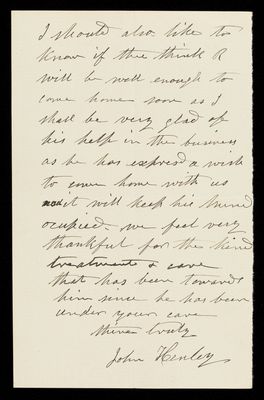 I should also like to
know if thee think R
will be well enough to
come home soon as I
shall be very glad of
his help in the business
as he has expresd a wish
to come home with us
and it will keep his mind
ocupied. we feel very
thankful for the kind
treatment & care
that has been towards
him since he has been
under your care
thine truly
John Henley